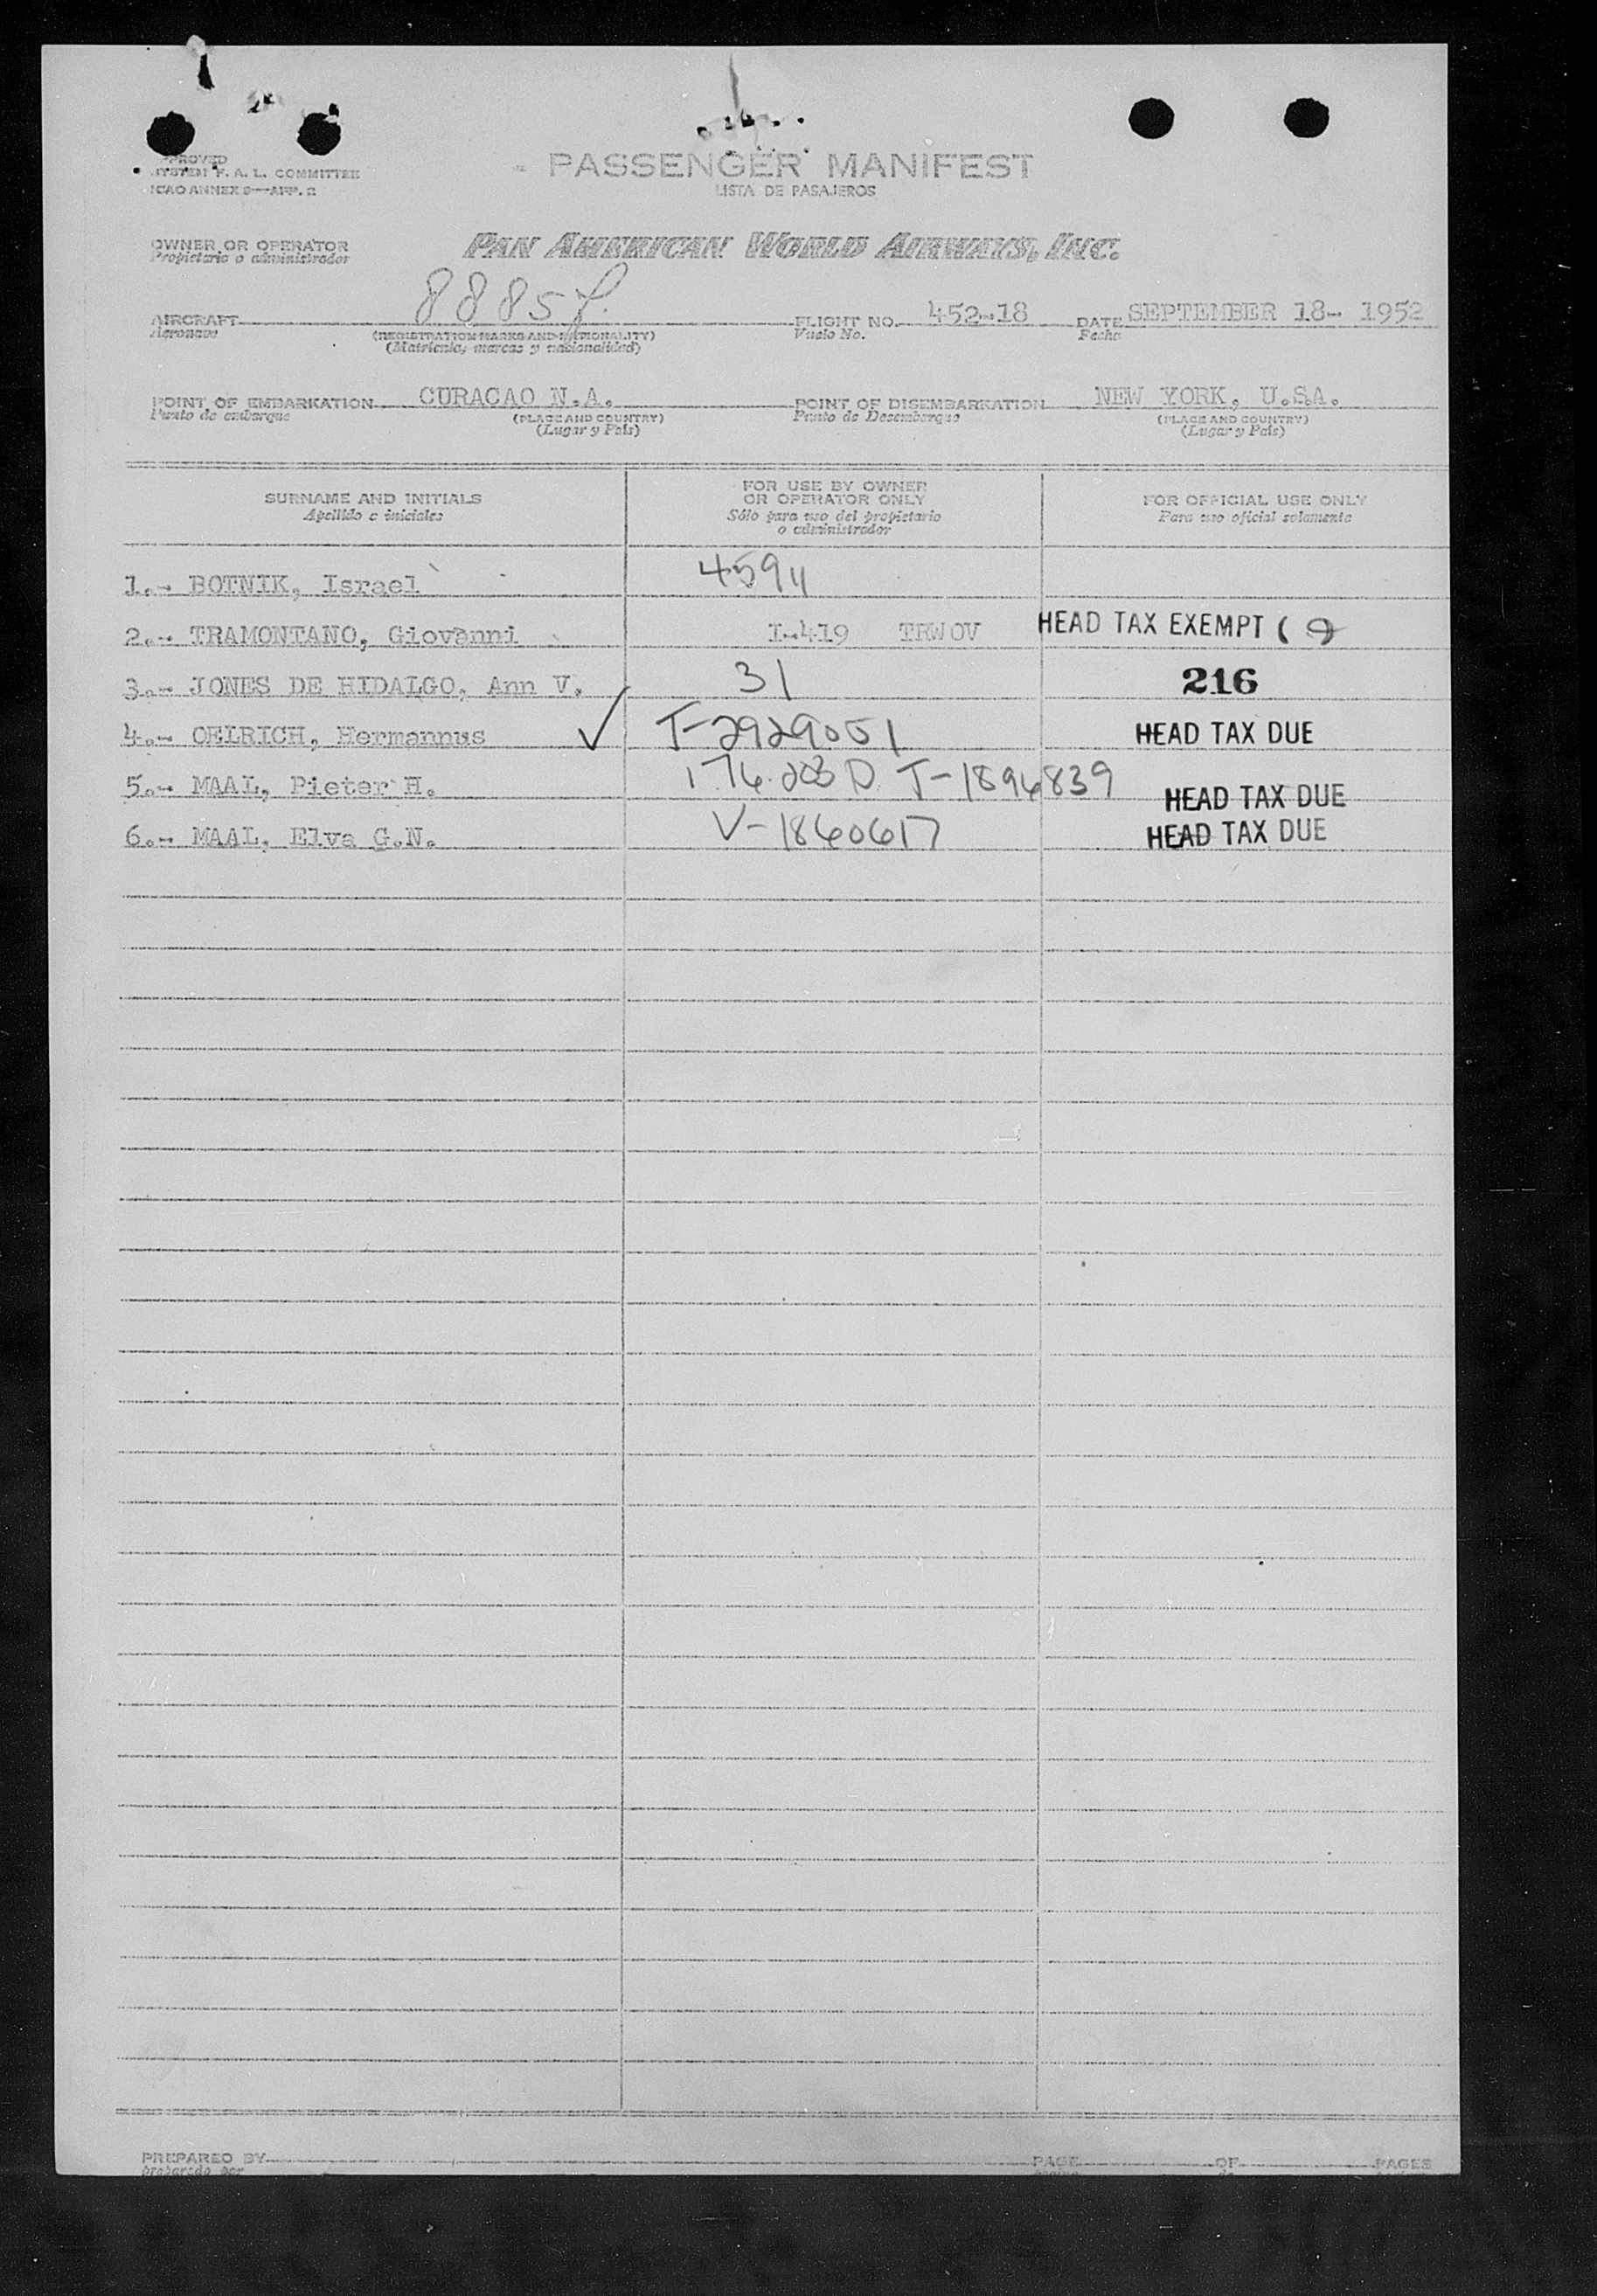 PROVED
SYSTEM F. A. L. COMMITTEE
ICAO ANNEX 9—APP. 2
PASSENGER MANIFEST
LISTA DE PASAJEROS
OWNER OR OPERATOR
Propietario o administrador
PAN AMERICAN WORLD AIRWAYS, INC.
AIRCRAFT 8885
Aeronave
(REGISTRATION MARKS AND NATIONALITY)
(Matricula, marcas y nacionalidad)
FLIGHT NO. 452-18
Vuelo No.
DATE SEPTEMBER 18- 1952
Fecha
POINT OF EMBARKATION CURACAO N.A.
Punto de embarque
(PLACE AND COUNTRY)
(Lugar y País)
POINT OF DISEMBARKATION NEW YORK, U.S.A.
Punto de Desembarque
(PLACE AND COUNTRY)
(Lugar y País)
SURNAME AND INITIALS
Apellido e iniciales
FOR USE BY OWNER
OR OPERATOR ONLY
Sólo para uso del propietario
o administrador
FOR OFFICIAL USE ONLY
Para uso oficial solamente
1.- BOTNIK, Israel 45911
2.- TRAMONTANO, Giovanni I-419 TRWOV HEAD TAX EXEMPT (9)
3.- JONES DE HIDALGO, Ann V. 31 216
4.- OELRICH, Hermannus ✓ T-2929051 HEAD TAX DUE
5.- MAAL, Pieter H. 176.203 D. T-1894839 HEAD TAX DUE
6.- MAAL, Elva G.N. V-1860617 HEAD TAX DUE
PREPARED BY
preparado por
PAGE OF PAGES